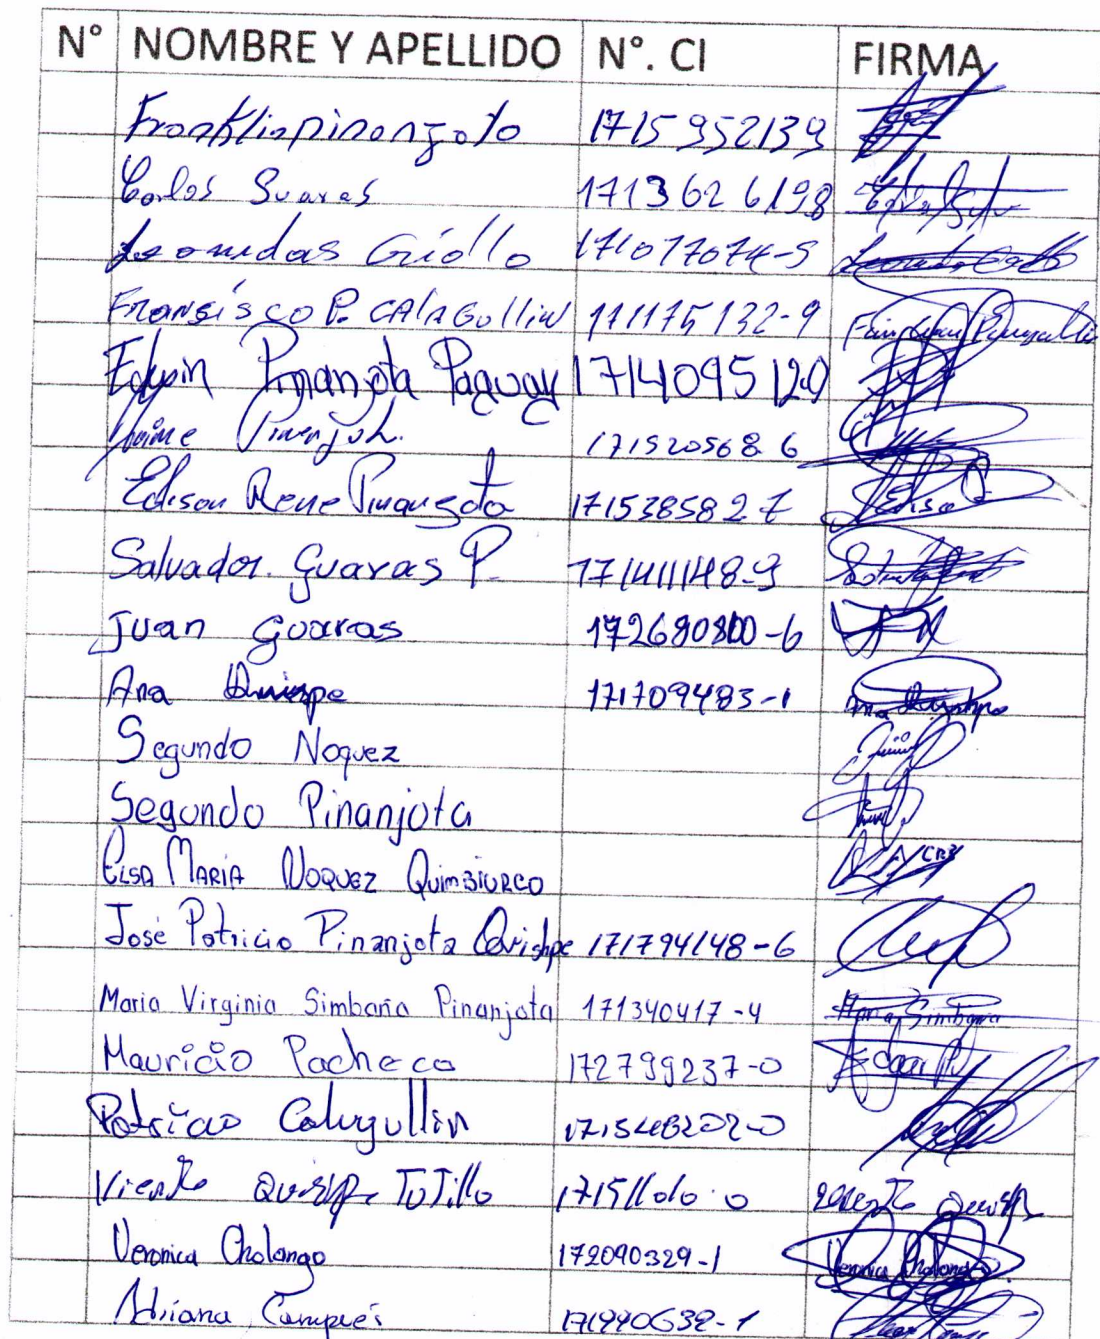 N° NOMBRE Y APELLIDO N°. CI FIRMA
Franklin Pinanjota 1715952139
Carlos Suaras 171362619-8
Leonidas Criollo 171017074-5
Fransisco P. CAlAGullin 171175132-9
Edwin Pinanjota Paguay 171409512-0
Jaime Pinanjota 171520568-6
Edison Rene Pinanjota 171538582-7 Edison
Salvador. Guaras P. 171411148-9
Juan Guaras 172680800-6
Ana Quispe 171709483-1 Ana
Segundo Noquez
Segundo Pinanjota
ELSA MARIA NOQUEZ QUIMBIURCO
José Patricio Pinanjota Quishpe 171794148-6
Maria Virginia Simbaña Pinanjota 171340417-4 Maria Simbaña
Mauricio Pacheco 172799237-0
Patricio Calugullin 171548202-0
Vicente Quishpe TuTillo 171511010-0
Veronica Cholango 172090329-1 Veronica Cholango
Adriana Campues 171990632-1